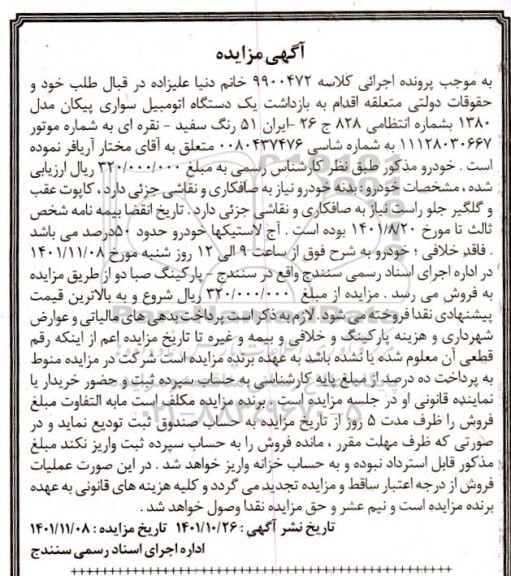 آگهی مزایده
به موجب پرونده اجرائی کلاسه ۹۹۰۰۴۷۲ خانم دنیا علیزاده در قبال طلب خود و
حقوقات دولتی متعلقه اقدام به بازداشت یک دستگاه اتومبیل سواری پیکان مدل
۱۳۸۰ بشماره انتظامی ۸۲۸ ج ۲۶ -ایران ۵۱ رنگ سفید - نقره ای به شماره موتور
۱۱۱۲۸۰۳۰۶۶۷ به شماره شاسی ۰۰۸۰۴۳۷۴۷۶ متعلق به آقای مختار آریافر نموده
است . خودرو مذکور طبق نظر کارشناس رسمی به مبلغ ۳۲۰/۰۰۰/۰۰۰ ریال ارزیابی
شده ، مشخصات خودرو : بدنه خودرو نیاز به صافکاری و نقاشی جزئی دارد ، کاپوت عقب
و گلگیر جلو راست نیاز به صافکاری و نقاشی جزئی دارد . تاریخ انقضا بیمه نامه شخص
ثالث تا مورخ ۱۴۰۱/۸/۲۰ بوده است . آج لاستیکها خودرو حدود ۵۰درصد می باشد
. فاقد خلافی ؛ خودرو به شرح فوق از ساعت ۹ الی ۱۲ روز شنبه مورخ ۱۴۰۱/۱۱/۰۸
در اداره اجرای اسناد رسمی سنندج واقع در سنندج - پارکینگ صبا دو از طریق مزایده
به فروش می رسد . مزایده از مبلغ ۳۲۰/۰۰۰/۰۰۰ ریال شروع و به بالاترین قیمت
پیشنهادی نقدا فروخته می شود. لازم به ذکر است پرداخت بدهی های مالیاتی و عوارض
شهرداری و هزینه پارکینگ و خلافی و بیمه و غیره تا تاریخ مزایده اعم از اینکه رقم
قطعی آن معلوم شده یا نشده باشد به عهده برنده مزایده است شرکت در مزایده منوط
به پرداخت ده درصد از مبلغ پایه کارشناسی به حساب سپرده ثبت و حضور خریدار یا
نماینده قانونی او در جلسه مزایده است . برنده مزایده مکلف است مابه التفاوت مبلغ
فروش را ظرف مدت ۵ روز از تاریخ مزایده به حساب صندوق ثبت تودیع نماید و در
صورتی که ظرف مهلت مقرر ، مانده فروش را به حساب سپرده ثبت واریز نکند مبلغ
مذکور قابل استرداد نبوده و به حساب خزانه واریز خواهد شد . در این صورت عملیات
فروش از درجه اعتبار ساقط و مزایده تجدید می گردد و کلیه هزینه های قانونی به عهده
برنده مزایده است و نیم عشر و حق مزایده نقدا وصول خواهد شد .
تاریخ نشر آگهی : ۱۴۰۱/۱۰/۲۶ تاریخ مزایده : ۱۴۰۱/۱۱/۰۸
اداره اجرای اسناد رسمی سنندج